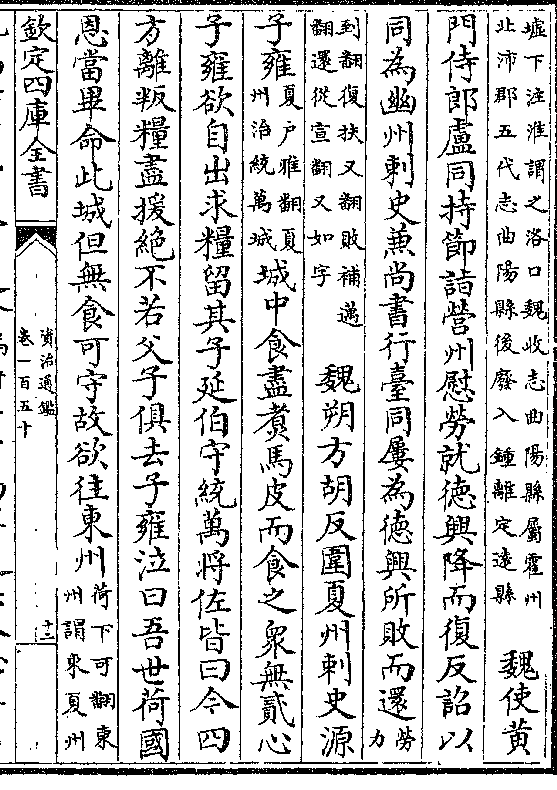 墟下注淮謂之洛口魏收志曲陽縣屬霍州
北沛郡五代志曲陽縣後廢入鍾離定遠縣
魏使黄
門侍郎盧同持節詣營州慰勞就徳興降而復反詔以
同為幽州刺史兼尚書行臺同屢為徳興所敗而還
勞力
到翻復扶又翻敗補邁
翻還從宣翻又如字
魏朔方胡反圍夏州刺史源
子雍
夏户雅翻夏
州治統萬城
城中食盡煑馬皮而食之衆無貳心
子雍欲自出求糧留其子延伯守統萬將佐皆曰今四
方離叛糧盡援絶不若父子俱去子雍泣曰吾世荷國
恩當畢命此城但無食可守故欲往東州
荷下可翻東
州謂東夏州
欽定四庫全書
資治通鑑
卷一百五十
十三